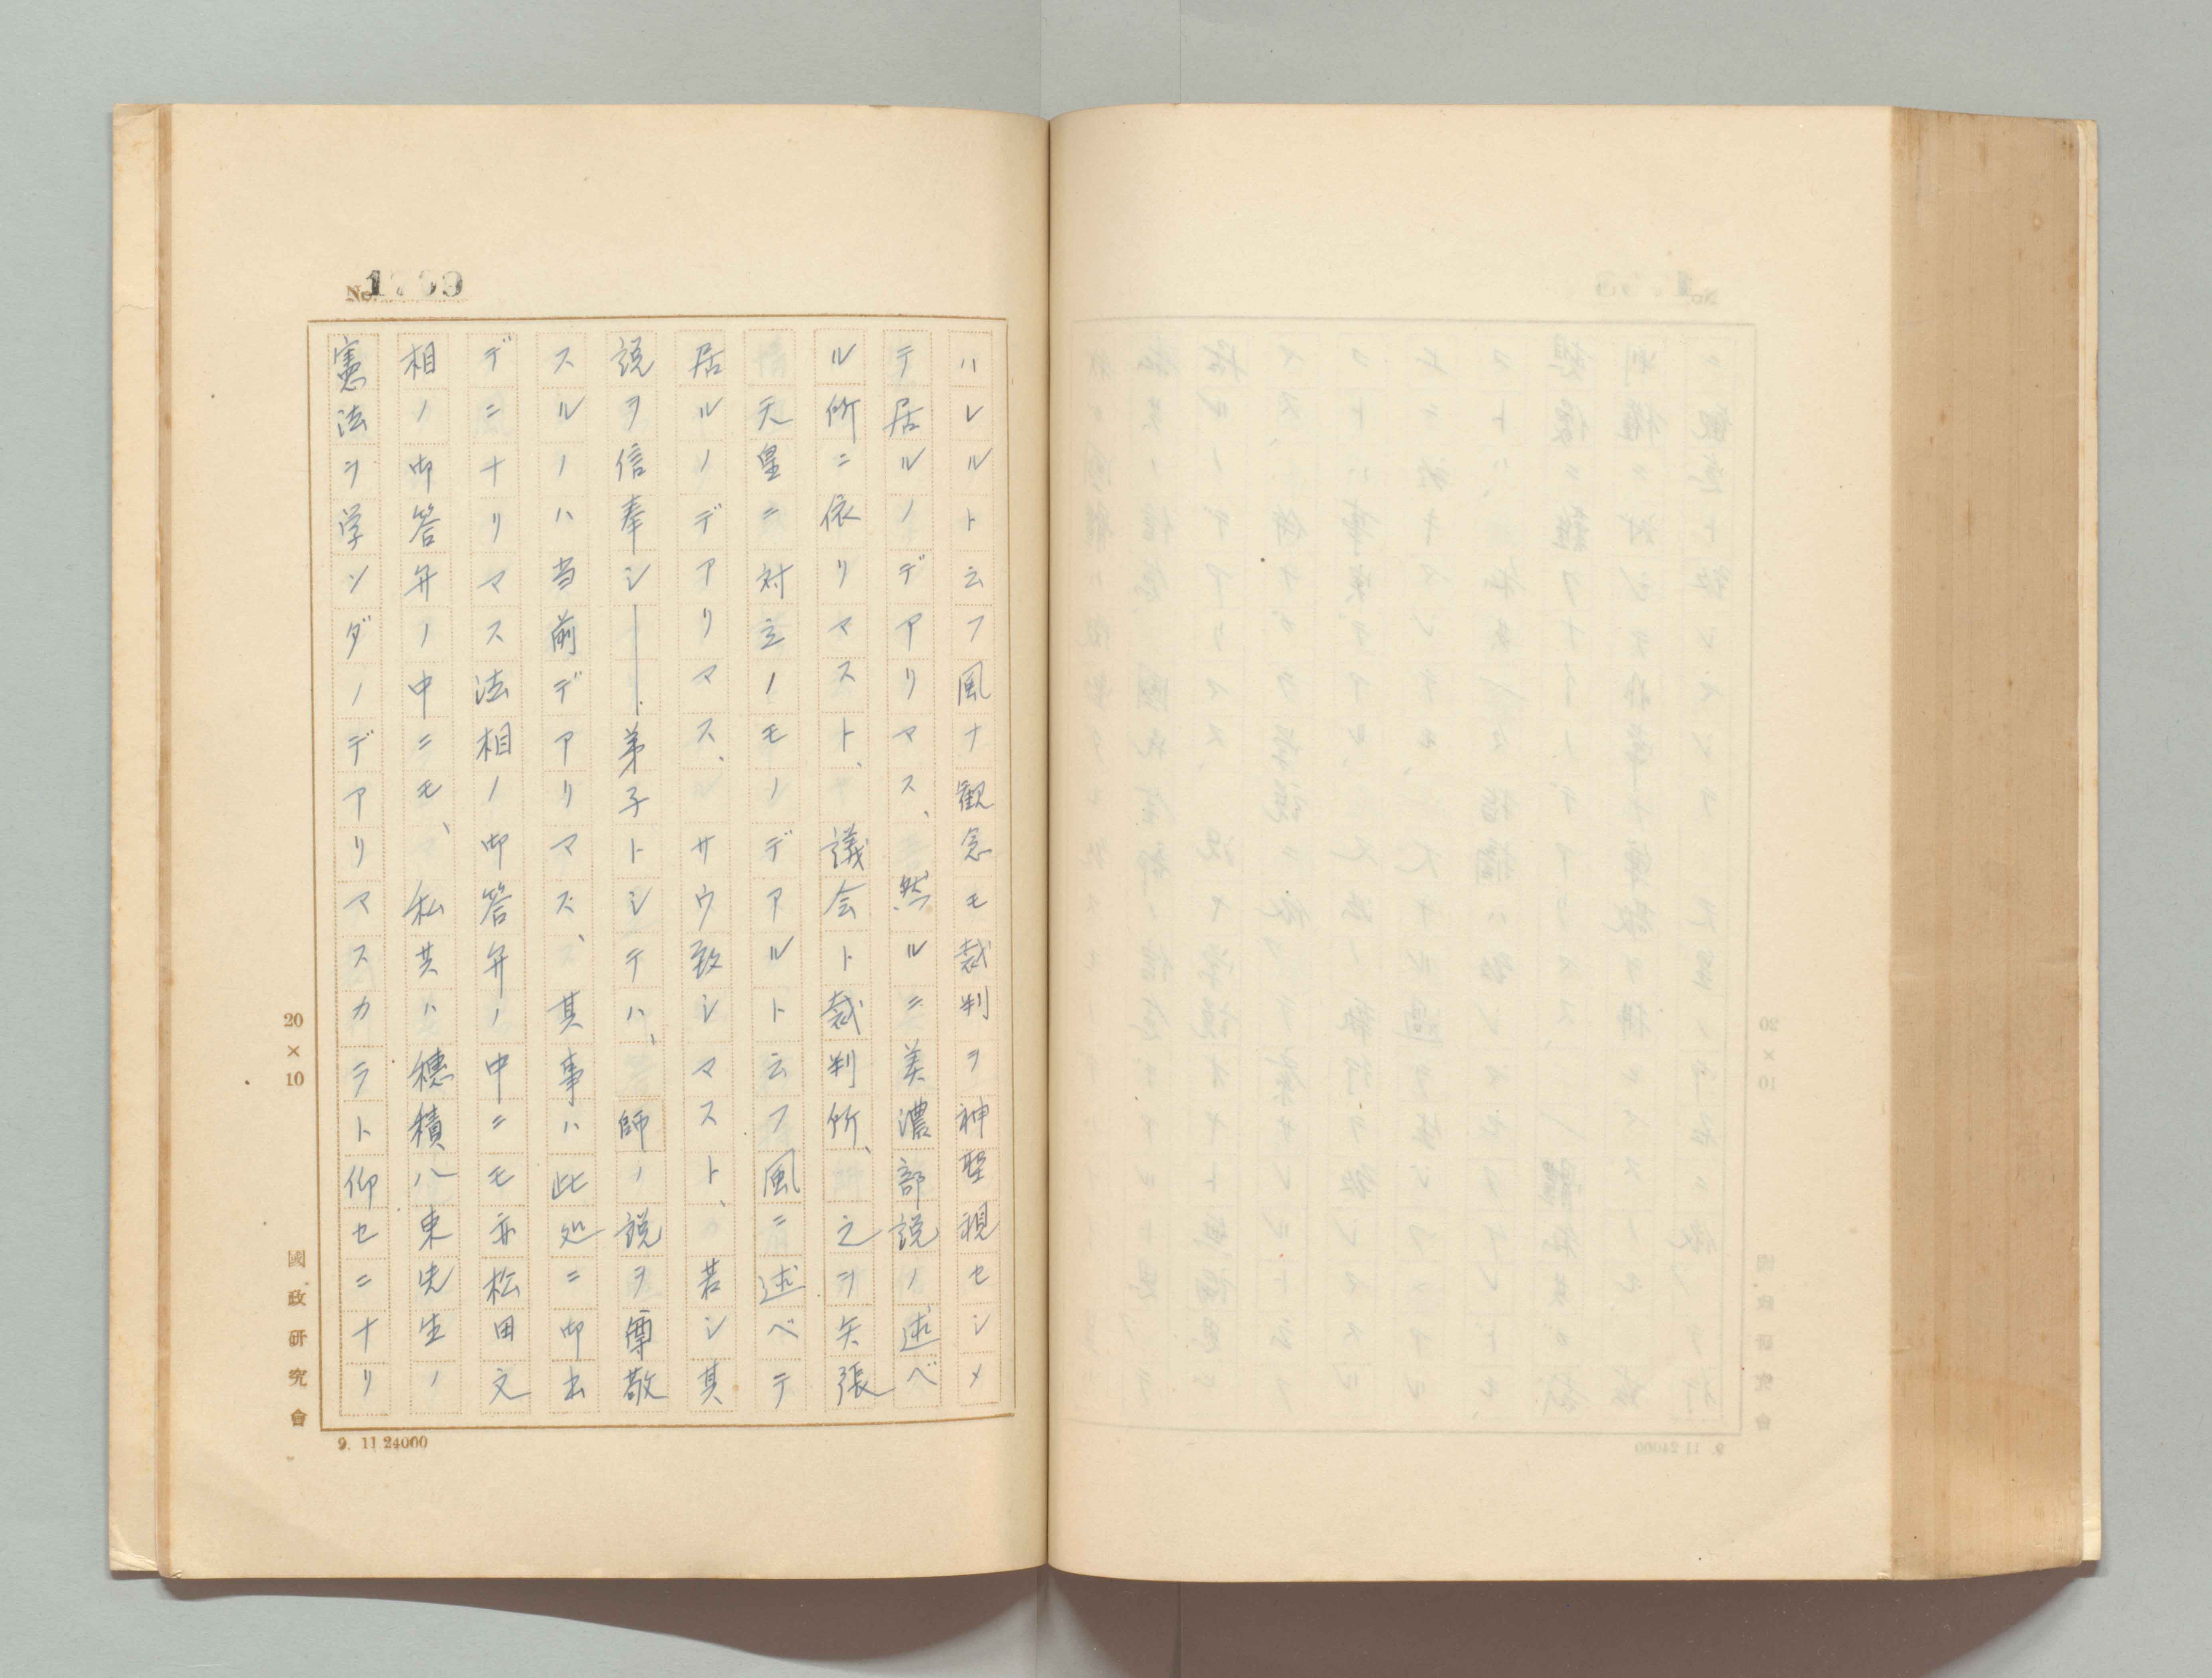 ハレルト云フ風ナ観念モ裁判ヲ神聖視セシメ
テ居ルノデアリマス、然ルニ美濃部説ノ述ベ
ル所ニ依リマスト、議会ト裁判所、之ヲ矢張
天皇ニ対立ノモノデアルト云フ風ニ述ベテ
居ルノデアリマス、サウ致シマスト、若シ其
説ヲ信奉シ――弟子トシテハ、師ノ説ヲ尊敬
スルノハ当前デアリマス、其事ハ此処ニ御出
デニナリマス法相ノ御答弁ノ中ニモ亦松田文
相ノ御答弁ノ中ニモ、私共ハ穂積八束先生ノ
憲法ヲ学ンダノデアリマスカラト仰セニナリ
20×10
國政研究會
9. 11 24000